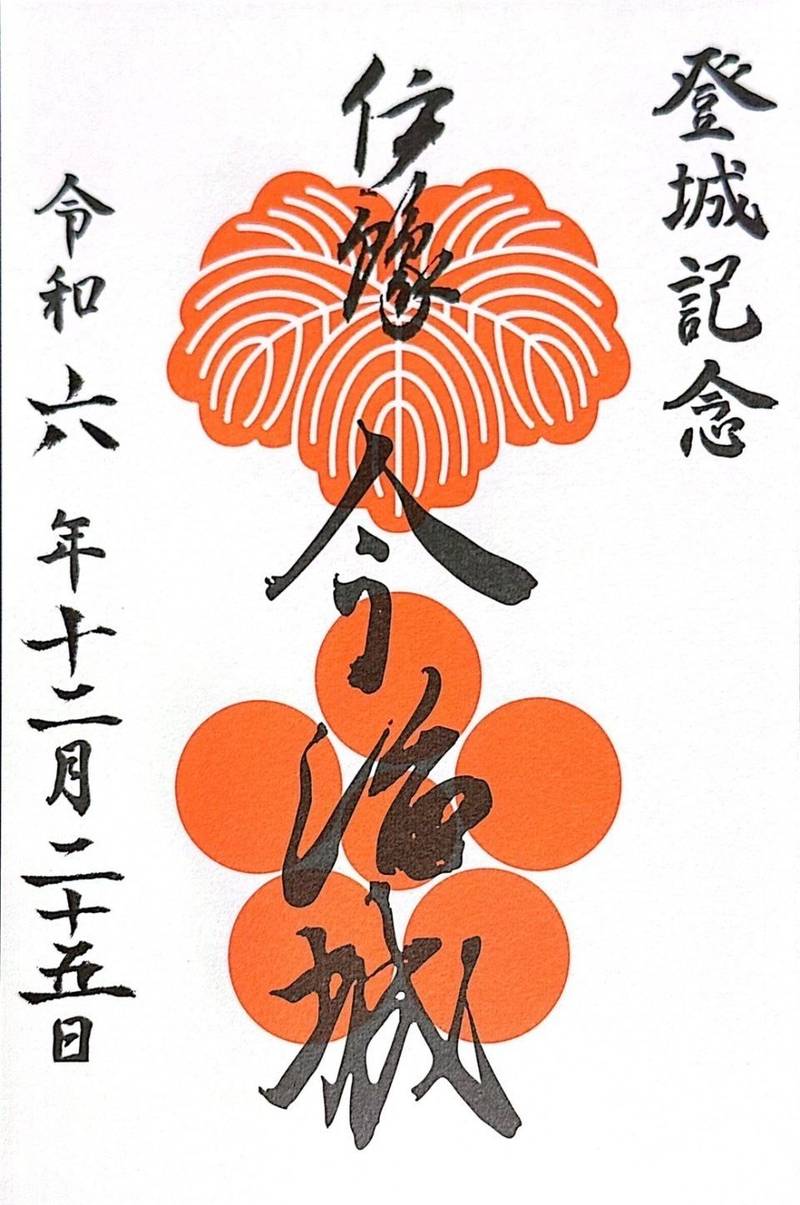 登城記念
伊豫
今治城
令和六年十二月二十五日